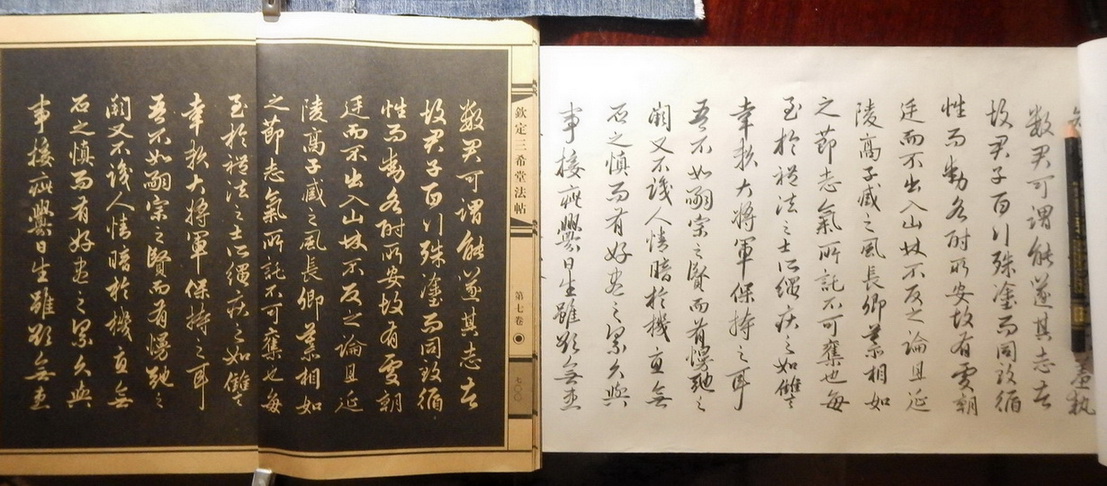 羞執
數君可謂能遂其志者
故君子百行殊塗而同致循
性而動各附所安故有處朝
廷而不出入山林不反之論且延
陵高子臧之風長卿慕相如
之節志氣所託不可奪也每
至於禮法之士所繩疾之如讎
幸賴大將軍保持之耳
吾不如嗣宗之賢而有慢弛之
闕又不識人情暗於機宜無
石之慎而有好盡之累久與
事接疵釁日生雖欲無患
欽定三希堂法帖
第七卷
七〇〇
數君可謂能遂其志者
故君子百行殊塗而同致循
性而動各附所安故有處朝
廷而不出入山林不反之論且延
陵高子臧之風長卿慕相如
之節志氣所託不可奪也每
至於禮法之士所繩疾之如讎
幸賴大將軍保持之耳
吾不如嗣宗之賢而有慢弛之
闕又不識人情暗於機宜無
石之慎而有好盡之累久與
事接疵釁日生雖欲無患